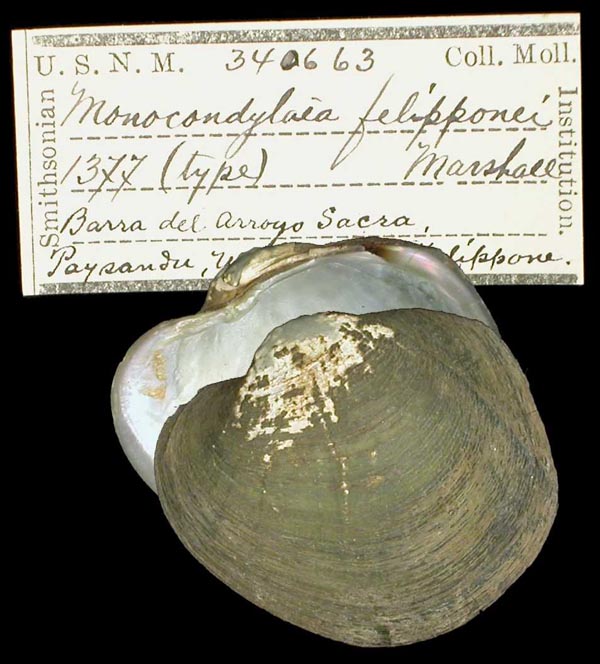 U. S. N. M. 340663 Coll. Moll.
Smithsonian
Monocondylaea felipponei
1377 (type) Marshall
Barra del Arroyo Sacra,
Paysandu,
Institution.